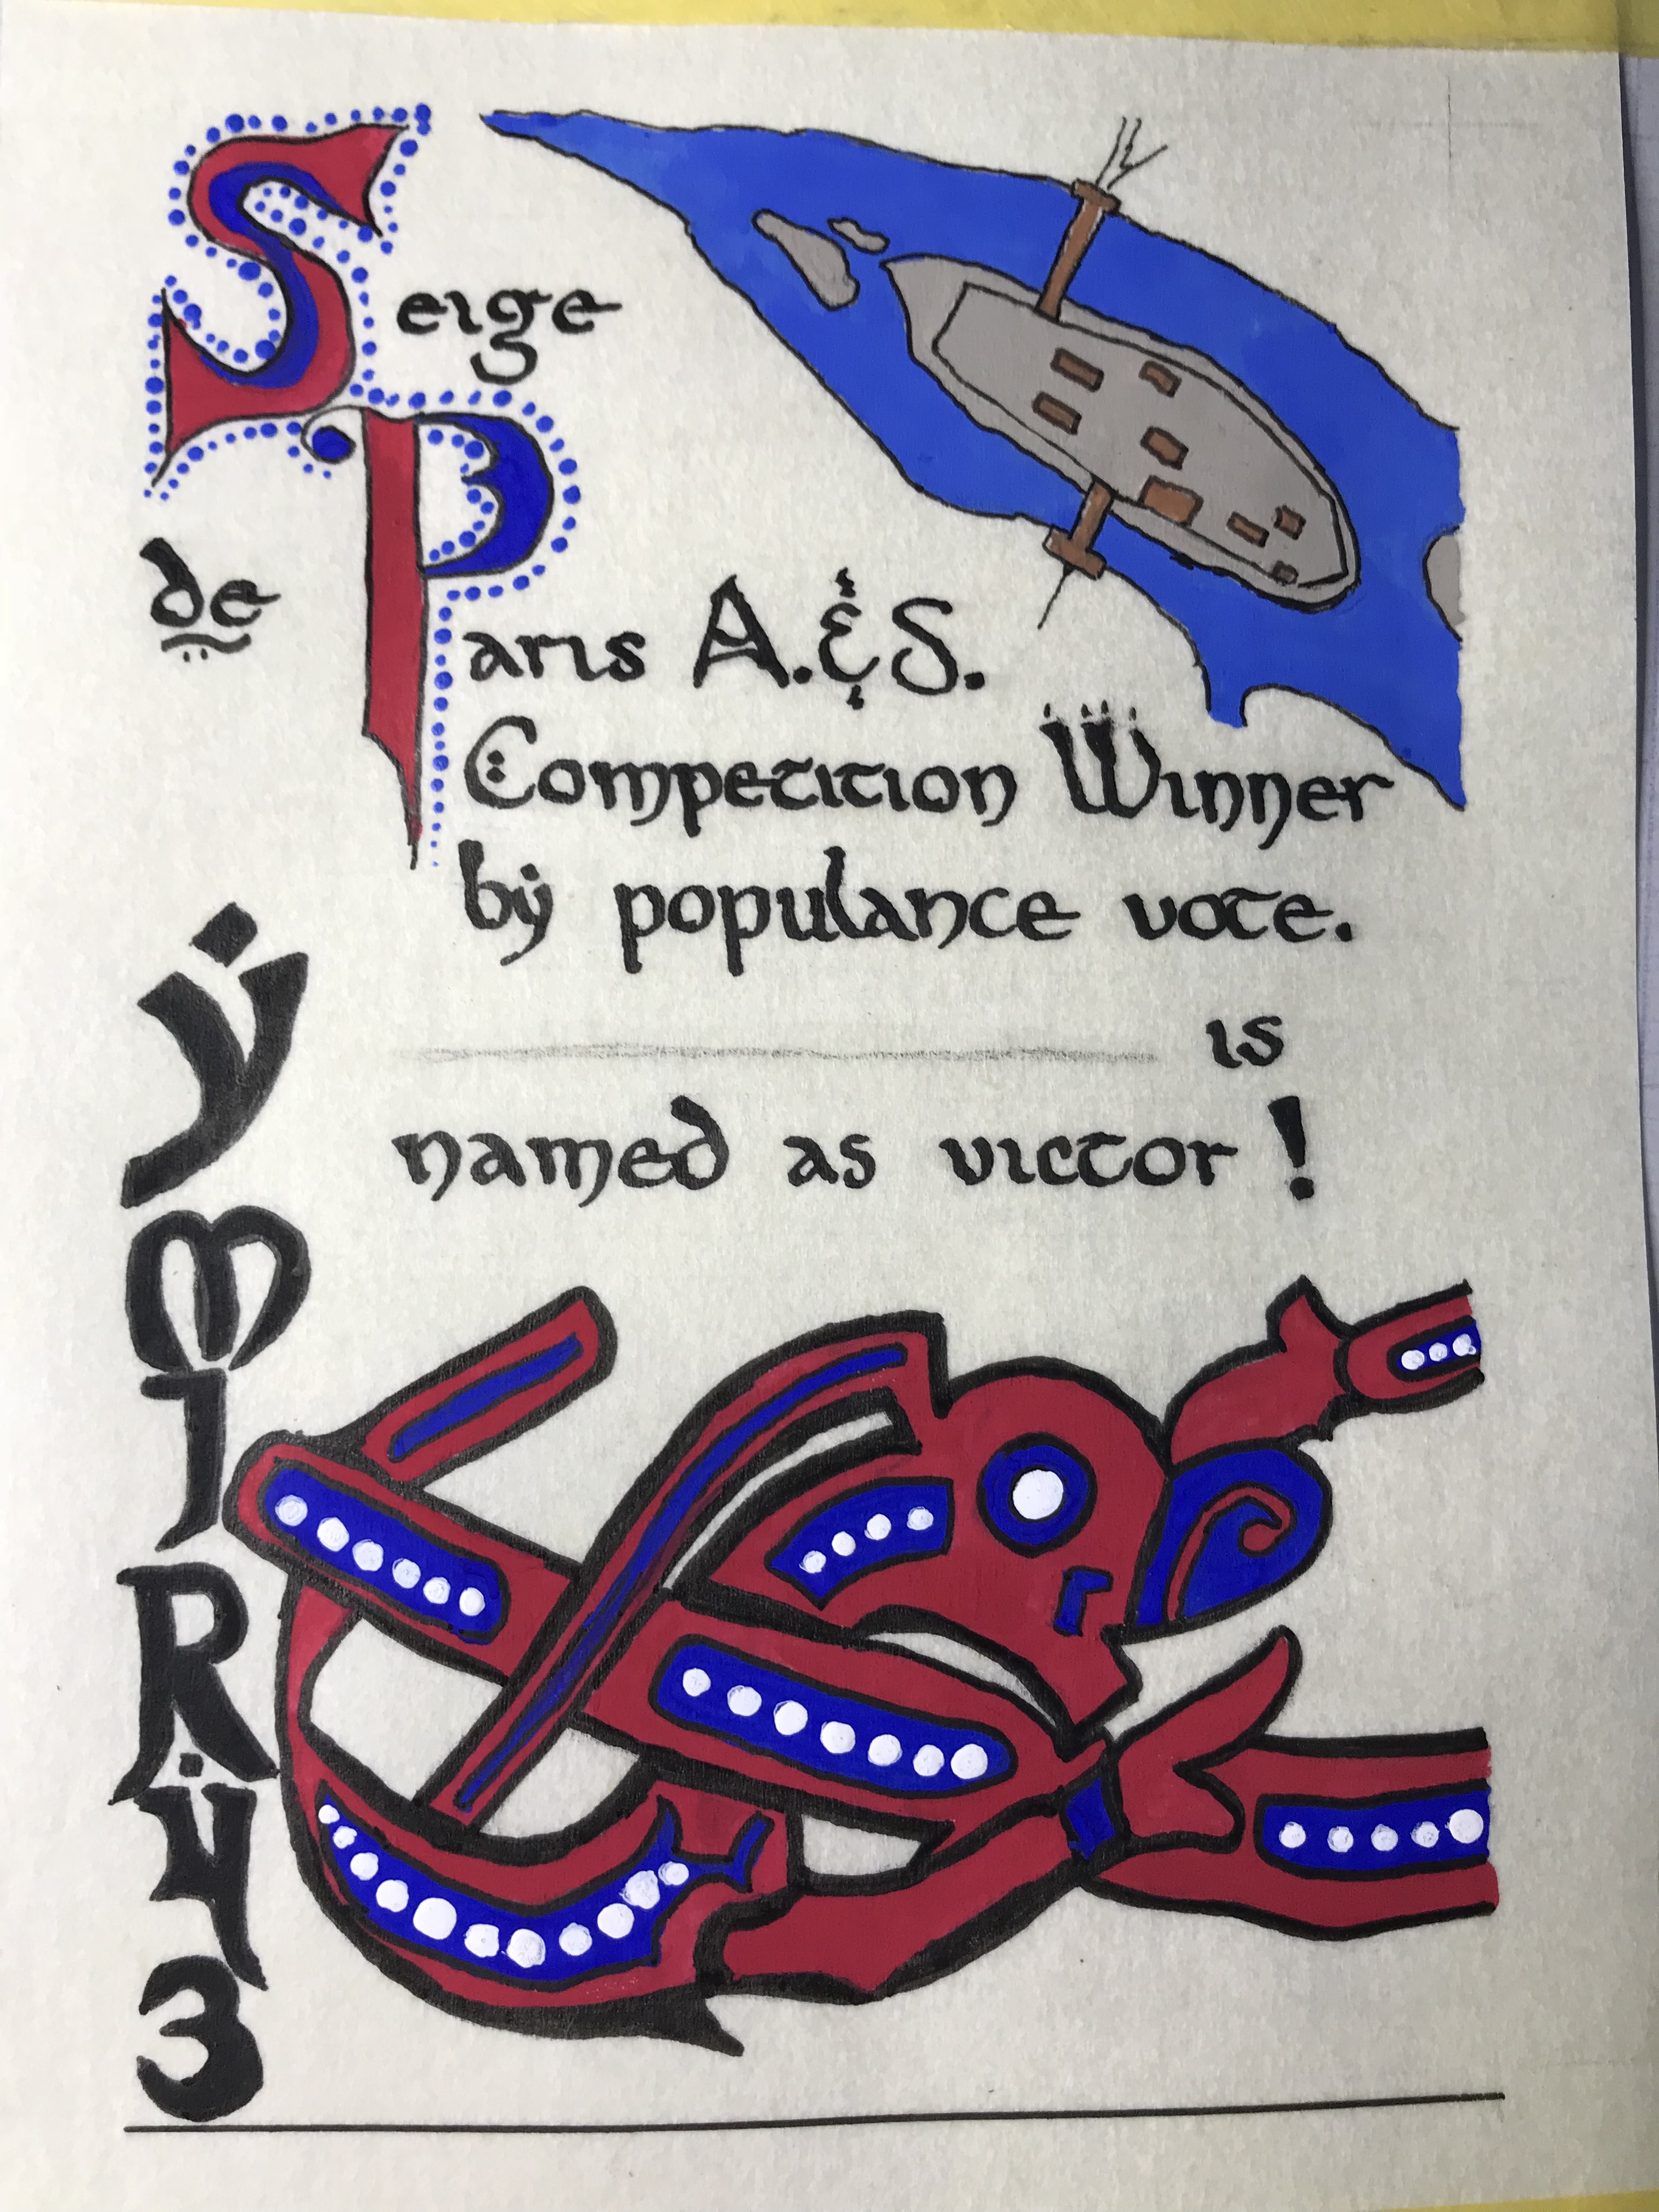 Seige
de Paris A.&S.
Competition Winner
by populance vote.
is
named as victor!
YMIRY3